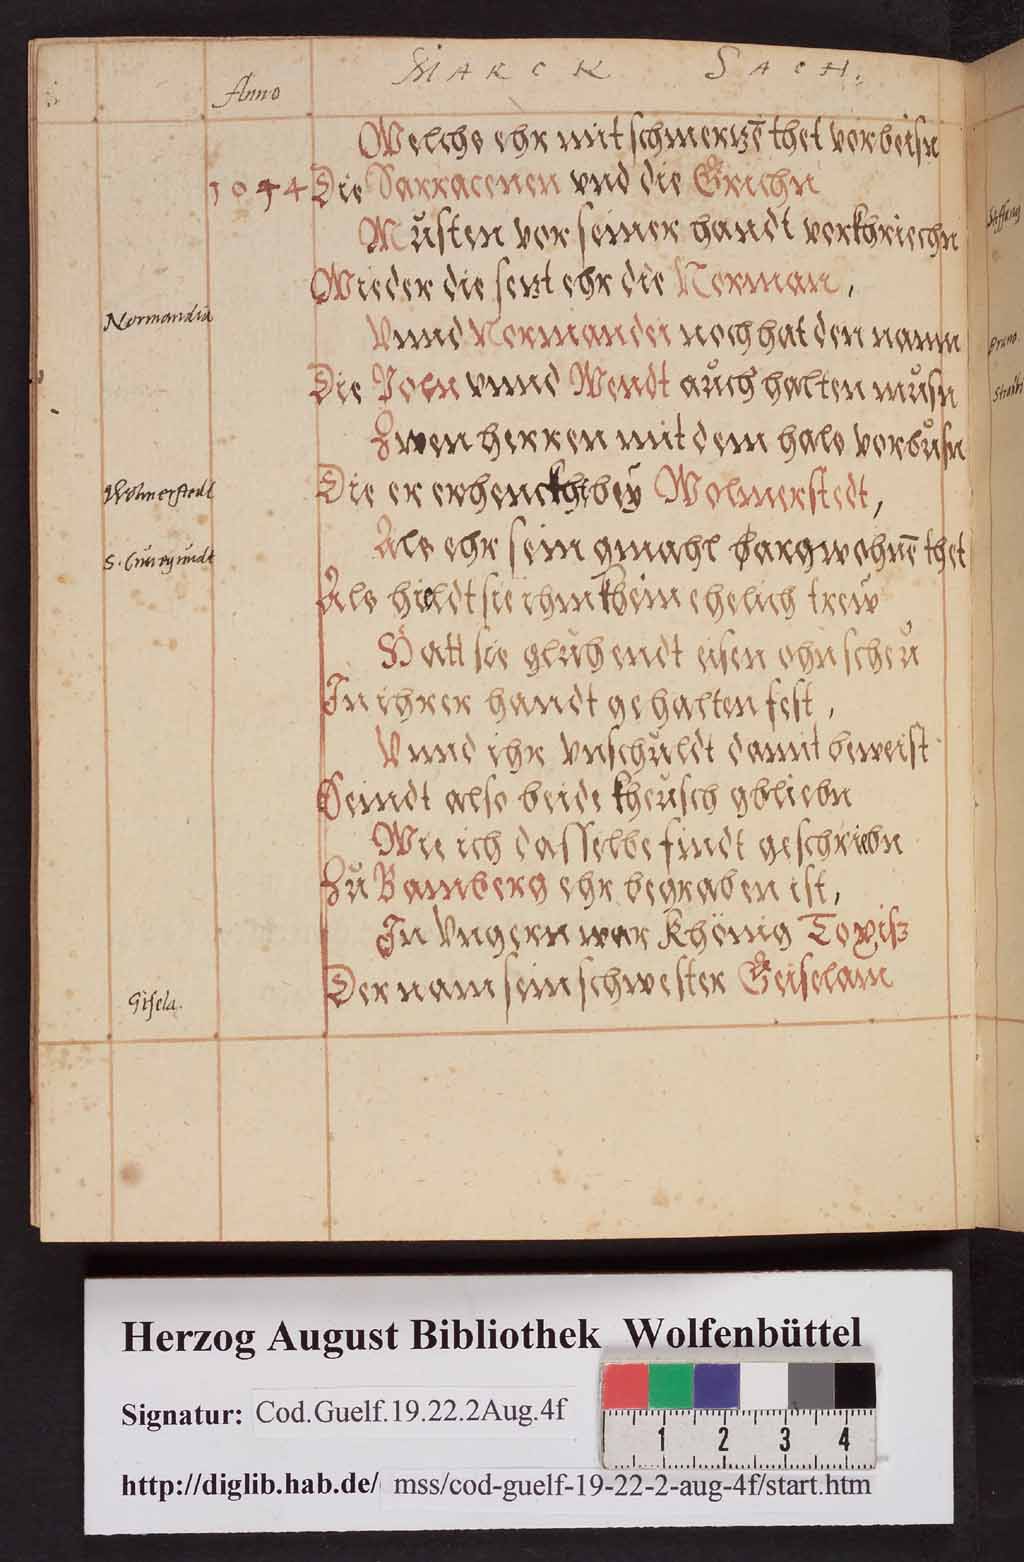 MARCK SACH:
Anno
Welchs ehr mit schmertzē thet verbeisn
1044 Die Sarracenen vnd die Grichn
Mŭsten vor seiner handt verkhriechn
Wieder die setzt ehr die Norman,
Normandia
Vnnd Normandei noch hat den namn
Die Poln vnnd Wendt aŭch halten mŭsn
Zwen herren mit dem hals verbŭsn
Wolmerstedt
Die er erhenckht beÿ Wolmerstedt,
Als ehr sein gmahl thet
S. Cŭnegŭndt
Als hieldt sie ihm khein ehelich treẅ
Hatt sie glŭhendt eisen ohn scheŭ
In ihrer handt gehalten fest,
Vnnd ihr Vnschŭldt damit beweist
Seindt also beide kheŭsch gbliebn
Wie ich dasselbe findt geschriebn
Zŭ Bamberg ehr begraben ist,
In Vngern war Khönig Toxisz
Der nam sein schwester Geiselam
Gisela.
Herzog August Bibliothek Wolfenbüttel
Signatur: Cod.Guelf.19.22.2Aug.4f
1 2 3 4
http://diglib.hab.de/ mss/cod-guelf-19-22-2-aug-4f/start.htm